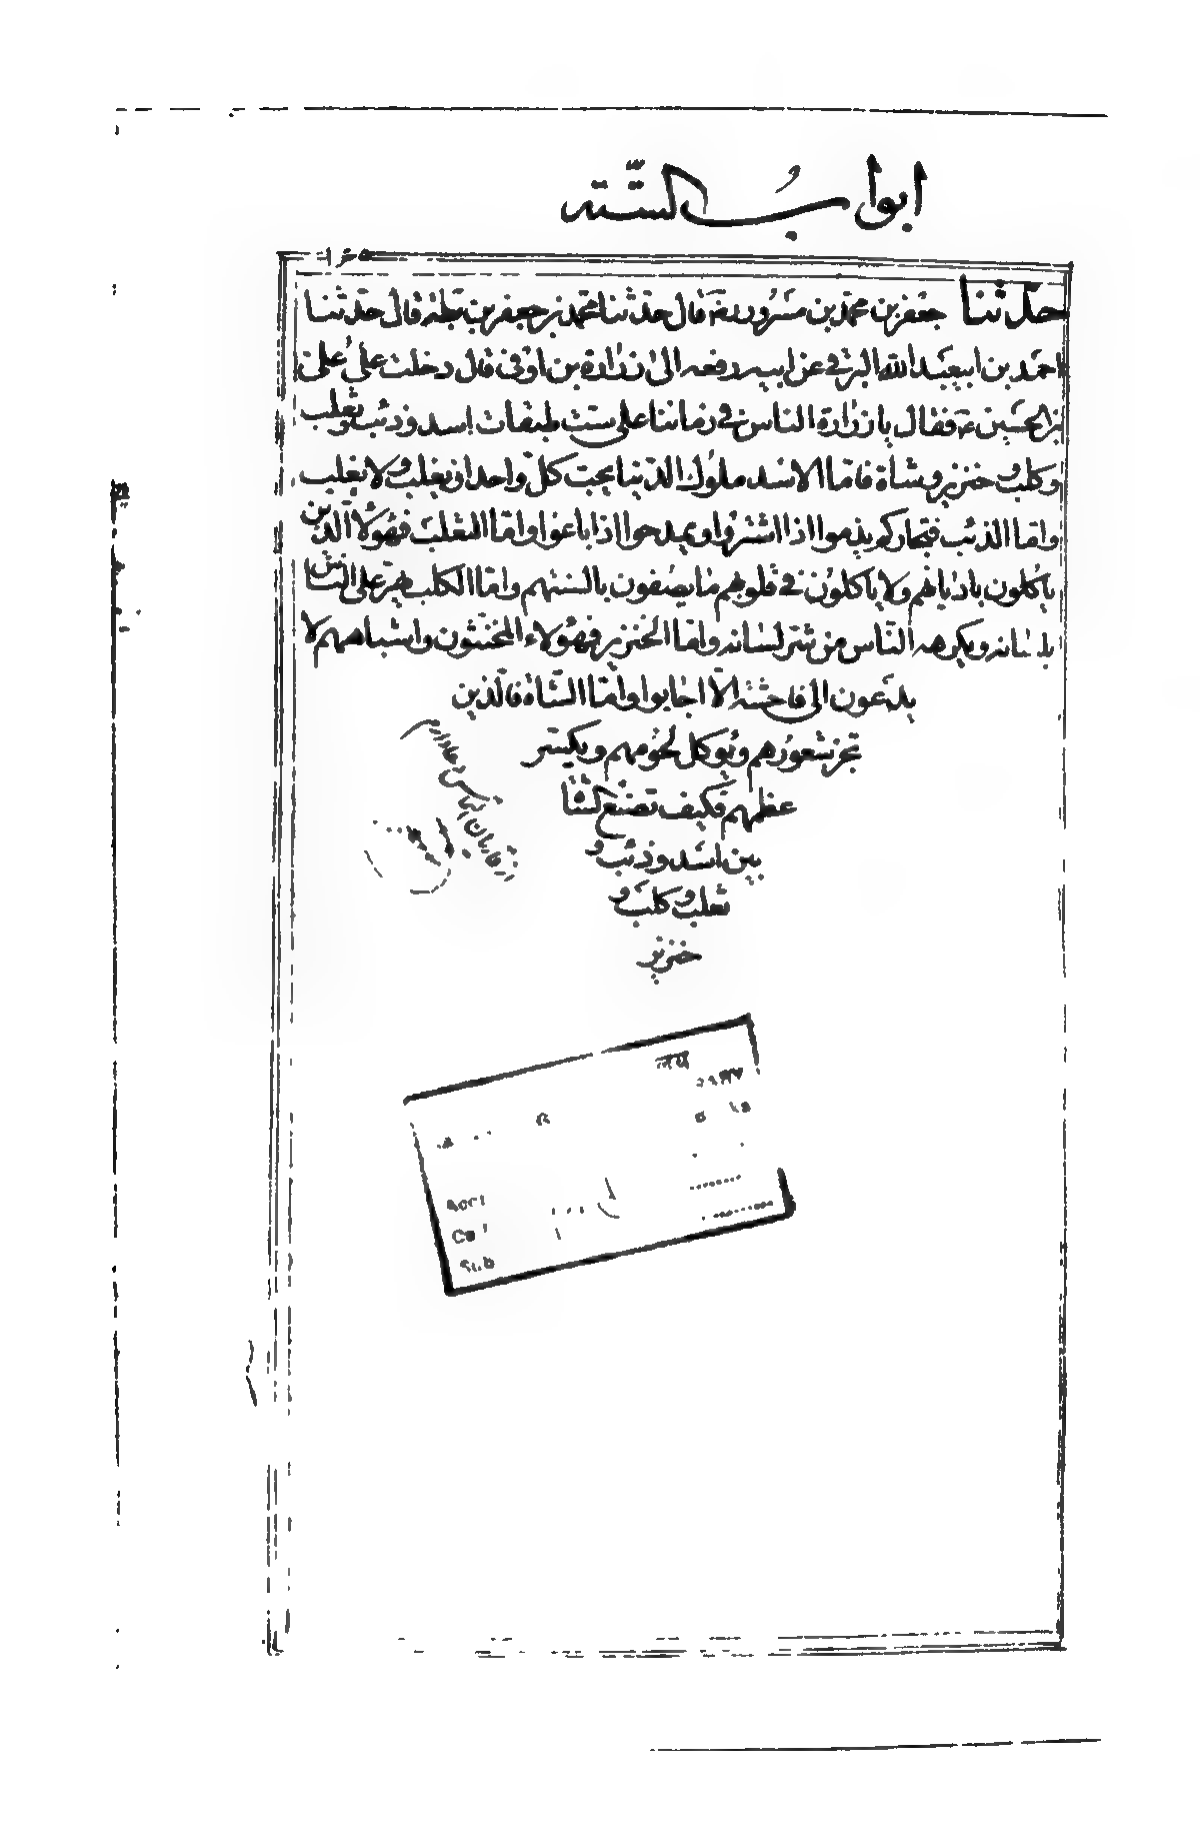 ابواب الستّة
حدّثنا جعفر بن محمّد بن مسرور رضه قال حدّثنا محمّد بن جعفر بن بطّه قال حدّثنا
احمد بن ابيعبد الله البرقى عن ابيه رفعه الى زرارة بن اوفى قال دخلت على على
بن الحسين عه فقال يا زرارة الناس فى زماننا على ستّ طبقات اسد وذئب وثعلب
وكلب وخنزير وشاة فامّا الاسد ملوك الدّنيا يحبّ كلّ واحد ان يغلب ولا يغلب
وامّا الذئب فتجاركم يذموا اذا اشتروا ويمدحوا اذا باعوا وامّا الثعلب فهؤلا الّذين
ياكلون باديانهم ولا ياكلون فى قلوبهم ما يصفون بالسنتهم وامّا الكلب يهرّ على النّاس
بلسانه ويكرهه النّاس من شر لسانه وامّا الخنزير فهؤلاء المخنّثون واشباههم لا
يدعون الى فاحشة الّا اجابوا وامّا الشاة فالّذين
تجز شعورهم ويوكل لحومهم ويكسر
عظمهم فكيف تصنع الشاة
بين اسد وذئب و
ثعلب وكلب و
خنزير
Sub